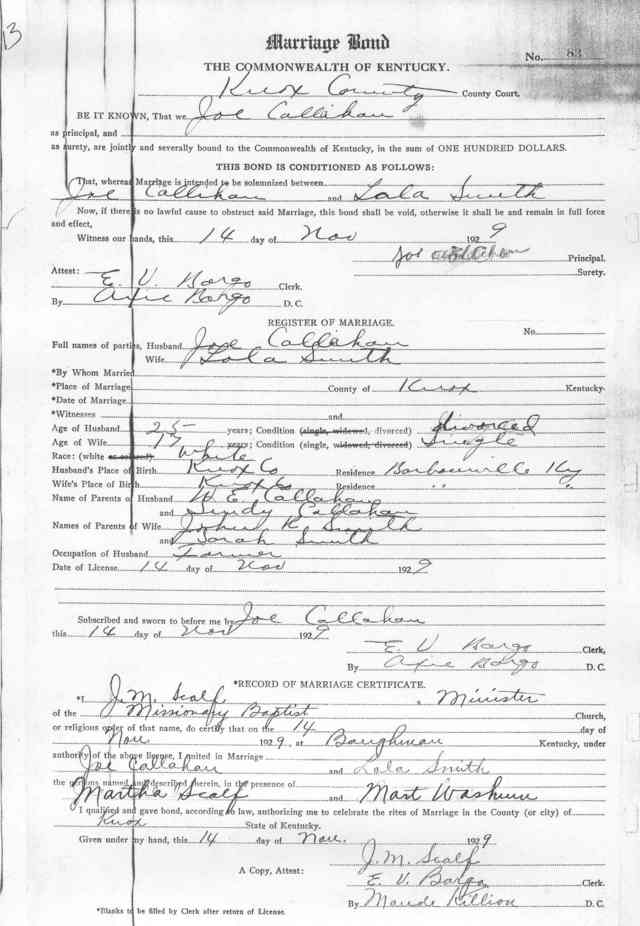 13
Marriage Bond
No. 83
THE COMMONWEALTH OF KENTUCKY.
Knox County County Court.
BE IT KNOWN, That we Joe Callahan
as principal, and
as surety, are jointly and severally bound to the Commonwealth of Kentucky, in the sum of ONE HUNDRED DOLLARS.
THIS BOND IS CONDITIONED AS FOLLOWS:
That, whereas Marriage is intended to be solemnized between
Joe Callahan and Lola Smith
Now, if there is no lawful cause to obstruct said Marriage, this bond shall be void, otherwise it shall be and remain in full force
and effect,
Witness our hands, this 14 day of Nov 1929
Joe Callahan Principal.
Surety.
Attest: E. V. Bargo Clerk.
By Axie Bargo D. C.
REGISTER OF MARRIAGE.
No.
Full names of parties, Husband Joe Callahan
Wife Lola Smith
*By Whom Married
*Place of Marriage County of Knox Kentucky.
*Date of Marriage
*Witnesses and
Age of Husband 25 years; Condition (single, widowed, divorced) divorced
Age of Wife 17 years; Condition (single, widowed, divorced) Single
Race: (white or colored) White
Husband's Place of Birth Knox Co Residence Barbourville Ky
Wife's Place of Birth Knox Co Residence " "
Name of Parents of Husband W. E. Callahan
and Sindy Callahan
Names of Parents of Wife John R. Smith
and Sarah Smith
Occupation of Husband Farmer
Date of License 14 day of Nov 1929
Subscribed and sworn to before me by Joe Callahan
this 14 day of Nov 1929
E. V. Bargo Clerk,
By Axie Bargo D. C.
*RECORD OF MARRIAGE CERTIFICATE.
*I J. M. Scalf, Minister
of the Missionary Baptist Church,
or religious order of that name, do certify that on the 14 day of
Nov. 1929, at Baughman Kentucky, under
authority of the above license, I united in Marriage
Joe Callahan and Lola Smith
the persons named and described therein, in the presence of
Martha Scalf and Mart Washum
I qualified and gave bond, according to law, authorizing me to celebrate the rites of Marriage in the County (or city) of
Knox State of Kentucky.
Given under my hand, this 14 day of Nov. 1929
J. M. Scalf
A Copy, Attest: E. V. Bargo Clerk.
By Maude Killion D. C.
*Blanks to be filled by Clerk after return of License.